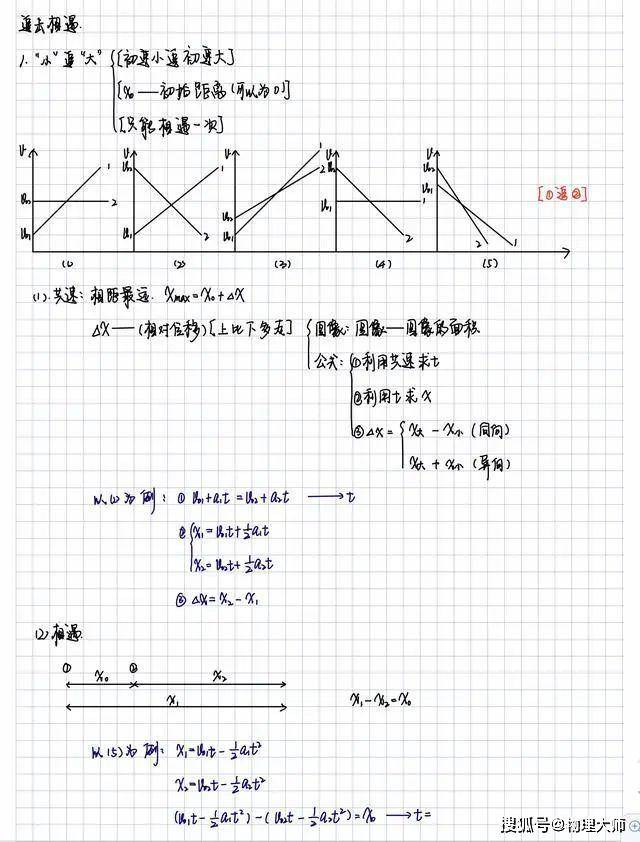 追击相遇.
1. "小"追"大" { [初速小追初速大]
[x₀ — 初始距离(可以为0)]
[只能相遇一次]
v v v v v
v₀₂ v₀₁ 1 2 (1)
v₀₂ v₀₁ 1 2 (2)
v₀₂ v₀₁ 1 2 (3)
v₀₂ v₀₁ 1 2 (4)
v₀₂ v₀₁ 2 1 (5)
[①追②]
(1). 共速: 相距最远. xmax = x₀ + Δx
Δx — (相对位移) [上比下多走] { 图像: 图像—图像的面积
公式: { ①利用共速求t
②利用t求x
③Δx = { x大 - x小 (同向)
x大 + x小 (异向)
以(1)为例: ① v₀₁+a₁t = v₀₂+a₂t → t
② { x₁ = v₀₁t + ½a₁t
x₂ = v₀₂t + ½a₂t
③ Δx = x₂ - x₁
(2) 相遇.
① x₀ ② x₂
x₁
x₁ - x₂ = x₀
以(5)为例: x₁ = v₀₁t - ½a₁t²
x₂ = v₀₂t - ½a₂t²
(v₀₁t - ½a₁t²) - (v₀₂t - ½a₂t²) = x₀ → t =
搜狐号@物理大师